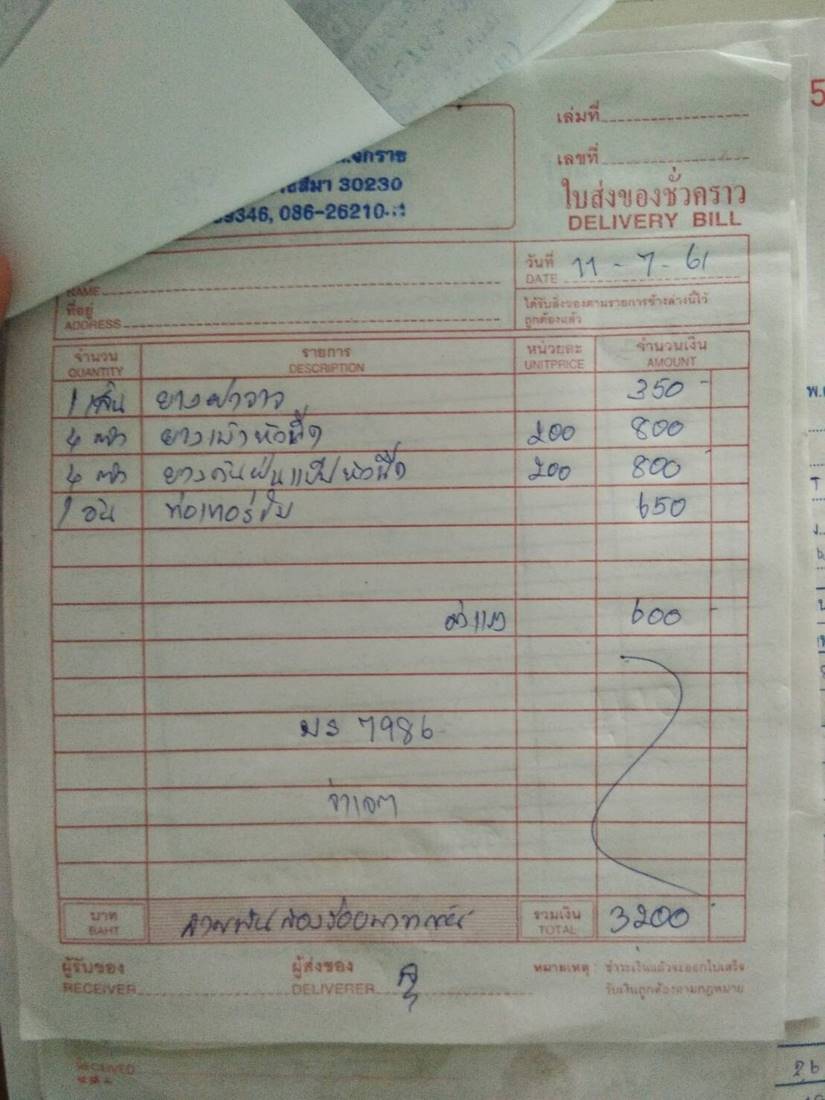 เล่มที่
เลขที่
จักราช
30230
086-26210
ใบส่งของชั่วคราว
DELIVERY BILL
วันที่ 11-7-61
DATE
NAME
ที่อยู่
ADDRESS
ได้รับสิ่งของตามรายการข้างล่างนี้ไว้
ถูกต้องแล้ว
จำนวน รายการ หน่วยละ จำนวนเงิน
QUANTITY DESCRIPTION UNITPRICE AMOUNT
1 เส้น ยางฝาวาว 350 -
4 ตัว ยางเบ้าหัวฉีด 200 800
4 ตัว ยางกันฝุ่นแป๊ปหัวฉีด 200 800
1 อัน ท่อเทอร์โบ 650
ค่าแรง 600 -
7986
บาท สามพันสองร้อยบาทถ้วน รวมเงิน 3200
BAHT TOTAL
ผู้รับของ ผู้ส่งของ หมายเหตุ : ชำระเงินแล้วจะออกใบเสร็จ
RECEIVER DELIVERER รับเงินถูกต้องตามกฎหมาย
RECEIVED